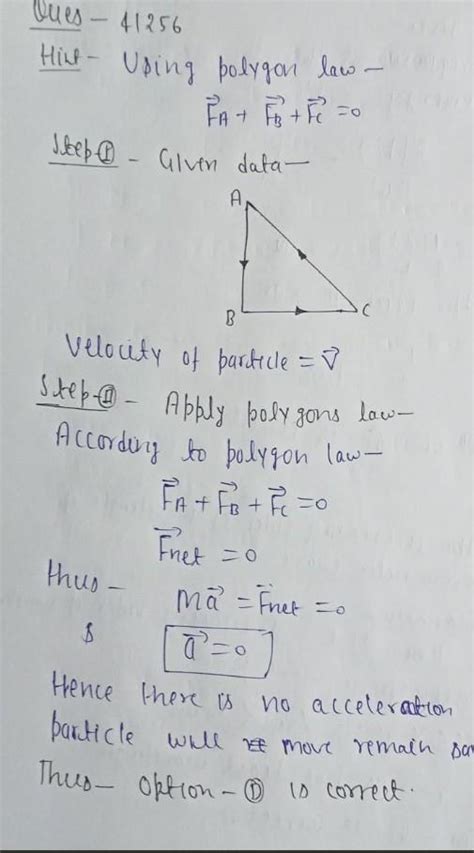 Ques - 41256
Hint - Using polygon law -
F⃗A + F⃗B + F⃗C = 0
Step-① - Given data -
A
B
C
Velocity of particle = v⃗
Step-② - Apply polygons law -
According to polygon law -
F⃗A + F⃗B + F⃗C = 0
F⃗net = 0
thus - ma⃗ = F⃗net = 0
a⃗ = 0
Hence there is no acceleration
particle will move remain
Thus - option - ① is correct.